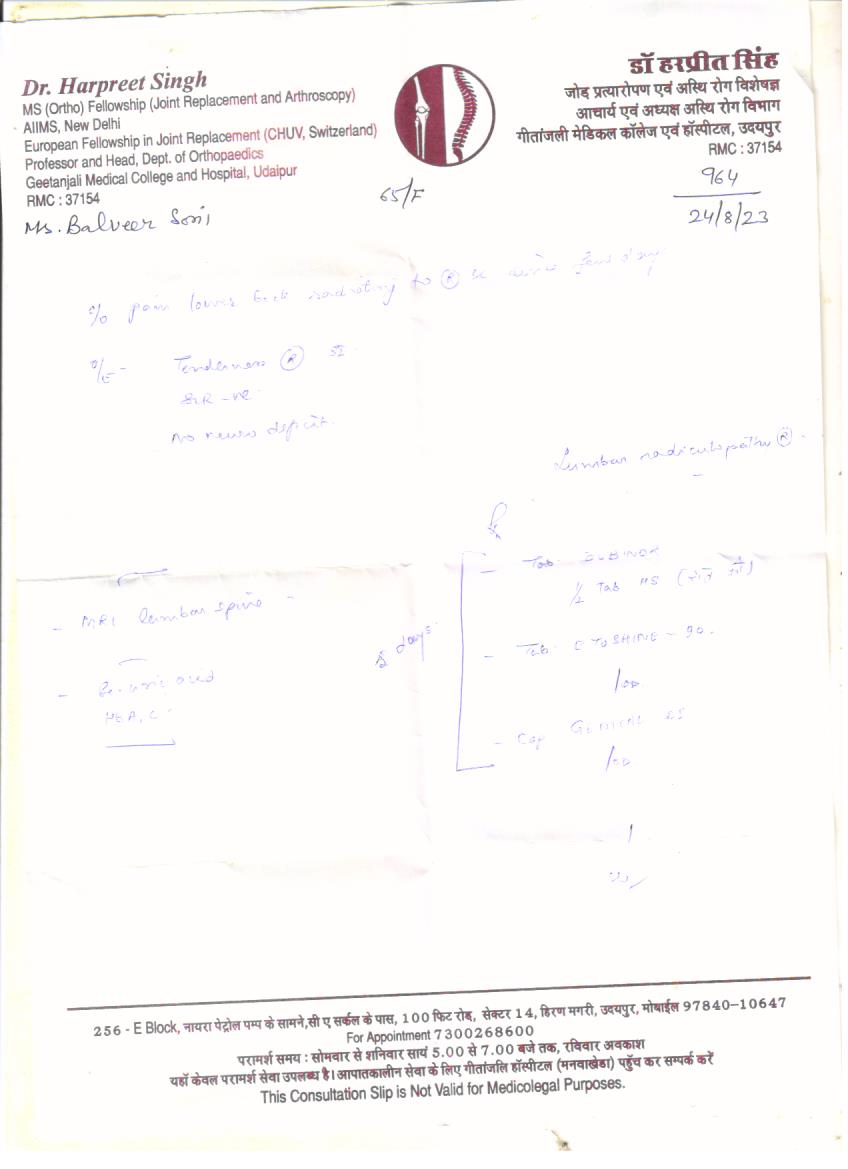 Dr. Harpreet Singh
MS (Ortho) Fellowship (Joint Replacement and Arthroscopy)
AIIMS, New Delhi
European Fellowship in Joint Replacement (CHUV, Switzerland)
Professor and Head, Dept. of Orthopaedics
Geetanjali Medical College and Hospital, Udaipur
RMC : 37154
डॉ हरप्रीत सिंह
जोड प्रत्यारोपण एवं अस्थि रोग विशेषज्ञ
आचार्य एवं अध्यक्ष अस्थि रोग विभाग
गीतांजली मेडिकल कॉलेज एवं हॉस्पीटल, उदयपुर
RMC : 37154
964
24/8/23
65/F
Ms. Balveer Soni
c/o pain lower back radiating to R
O/E - Tenderness R SI
SLR -ve
No neuro deficit.
Lumbar radiculopathy R
Rx
- Tab
1/2 Tab HS
- MRI lumbar spine -
days
- Tab. ETOSHINE - 90.
/OD
- uric acid
- Cap
/OD
256 - E Block, नायरा पेट्रोल पम्प के सामने,सी ए सर्कल के पास, 100 फिट रोड, सेक्टर 14, हिरण मगरी, उदयपुर, मोबाईल 97840-10647
For Appointment 7300268600
परामर्श समय : सोमवार से शनिवार सायं 5.00 से 7.00 बजे तक, रविवार अवकाश
यहाँ केवल परामर्श सेवा उपलब्ध है। आपातकालीन सेवा के लिए गीतांजलि हॉस्पीटल (मनवाखेडा) पहुँच कर सम्पर्क करें
This Consultation Slip is Not Valid for Medicolegal Purposes.